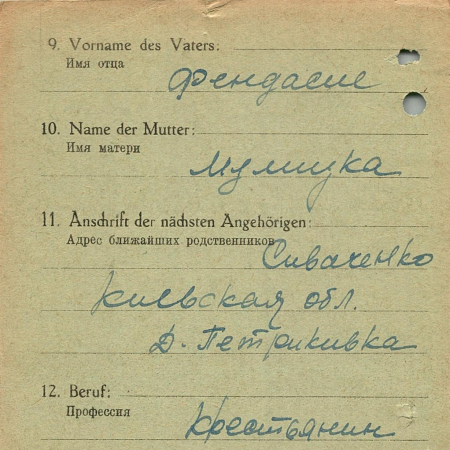 9. Vorname des Vaters:
Имя отца
Фендасие
10. Name der Mutter:
Имя матери
Мулицка
11. Anschrift der nächsten Angehörigen:
Адрес ближайших родственников
Сиваченко
Киевская обл.
Д. Петрикивка
12. Beruf:
Профессия
Крестьянин